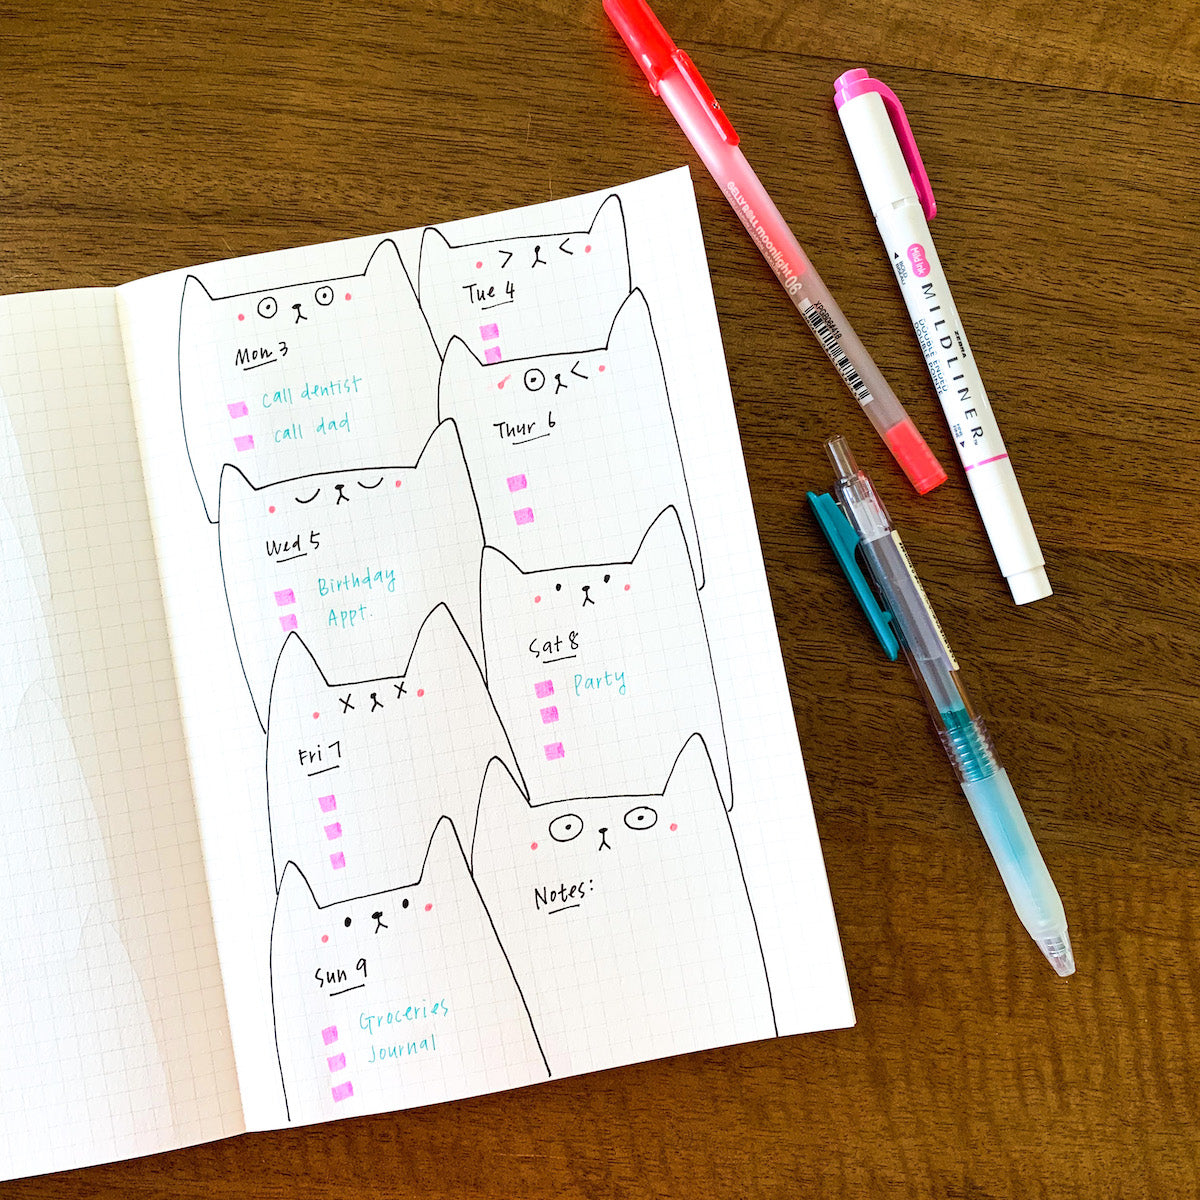 Mon 3
call dentist
call dad
Tue 4
Wed 5
Birthday
Appt.
Thur 6
Fri 7
Sat 8
Party
Sun 9
Groceries
Journal
Notes:
GELLY ROLL moonlight 06
Mild Ink
ZEBRA
MILDLINER
DOUBLE ENDED
DOUBLE POINTE